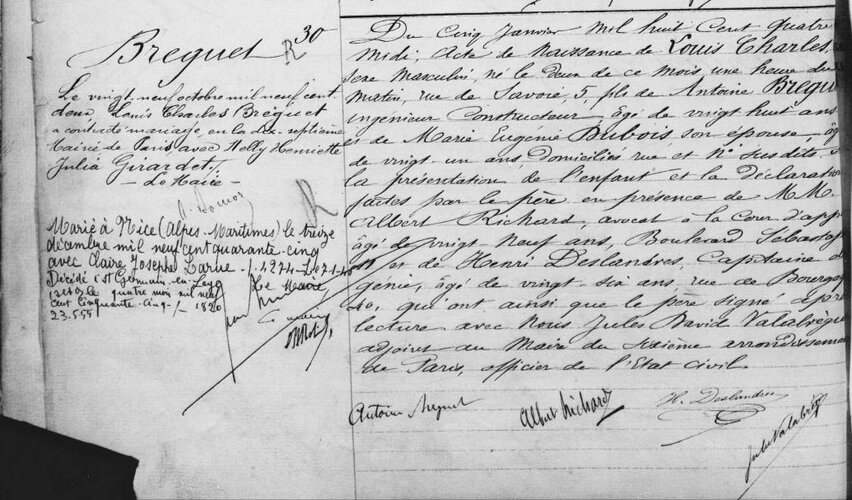 30
Breguet
R
Le vingt neuf octobre mil neuf cent
deux, Louis Charles Bréguet
a contracté mariage, en la dix-septième
Mairie de Paris avec Nelly Henriette
Julia Girardet,
- Le Maire -
R
Marié à Nice (Alpes-Maritimes) le treize
décembre mil neuf cent quarante-cinq
avec Claire Joseph Larue
Le Maire
Décédé à St Germain-en-Laye
le quatre mai mil neuf
cent cinquante-cinq 1820
23.555
Du Cinq Janvier Mil huit Cent quatre
midi, Acte de Naissance de Louis Charles,
sexe Masculin, né le Deux de ce mois, une heure du
Matin, rue de Savoie, 5, fils de Antoine Bregu
ingénieur Constructeur, âgé de vingt huit ans
de Marie Eugénie Dubois, son épouse, âg
de vingt-un ans, Domiciliés rue et N° susdits. S
la présentation de l'enfant et la déclaration
faites par le père en présence de M.M.
Albert Richard, avocat à la Cour d'app
âgé de vingt-neuf ans, Boulevard Sébastop
et de Henri Deslandres, Capitaine d
génie, âgé de vingt-six ans, rue de Bourgog
40, qui ont ainsi que le père signé aprè
lecture avec Nous, Jules David Valabrègue
adjoint au Maire du Sixième arrondissement
de Paris, officier de l'Etat civil.
Antoine Breguet
Albert Richard
H. Deslandres
Jules Valabrègue